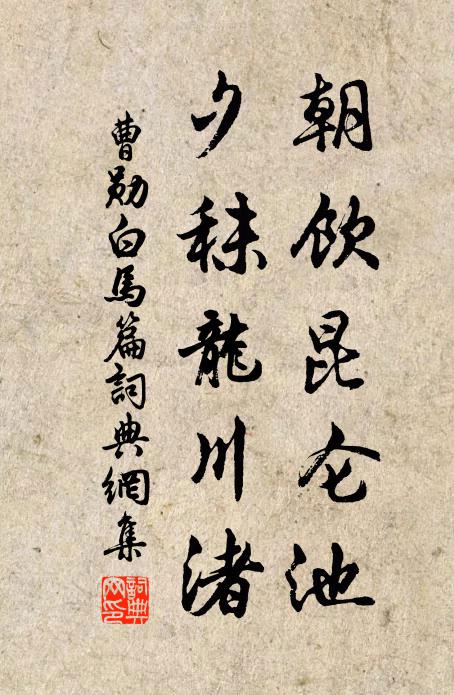 朝饮昆仑池
夕秣龍川渚
曹勋白馬篇詞典網集
詞典网印